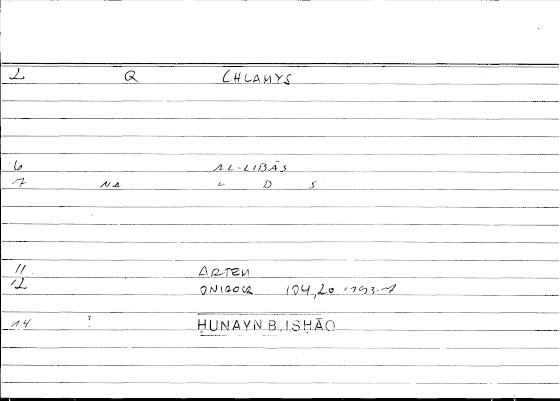 2 Q CHLAMYS
6 AL-LIBĀS
7 NA L D S
11 ARTEM
12 ONIROCR 104,20
14 ? ḤUNAYN B. ISḤĀQ